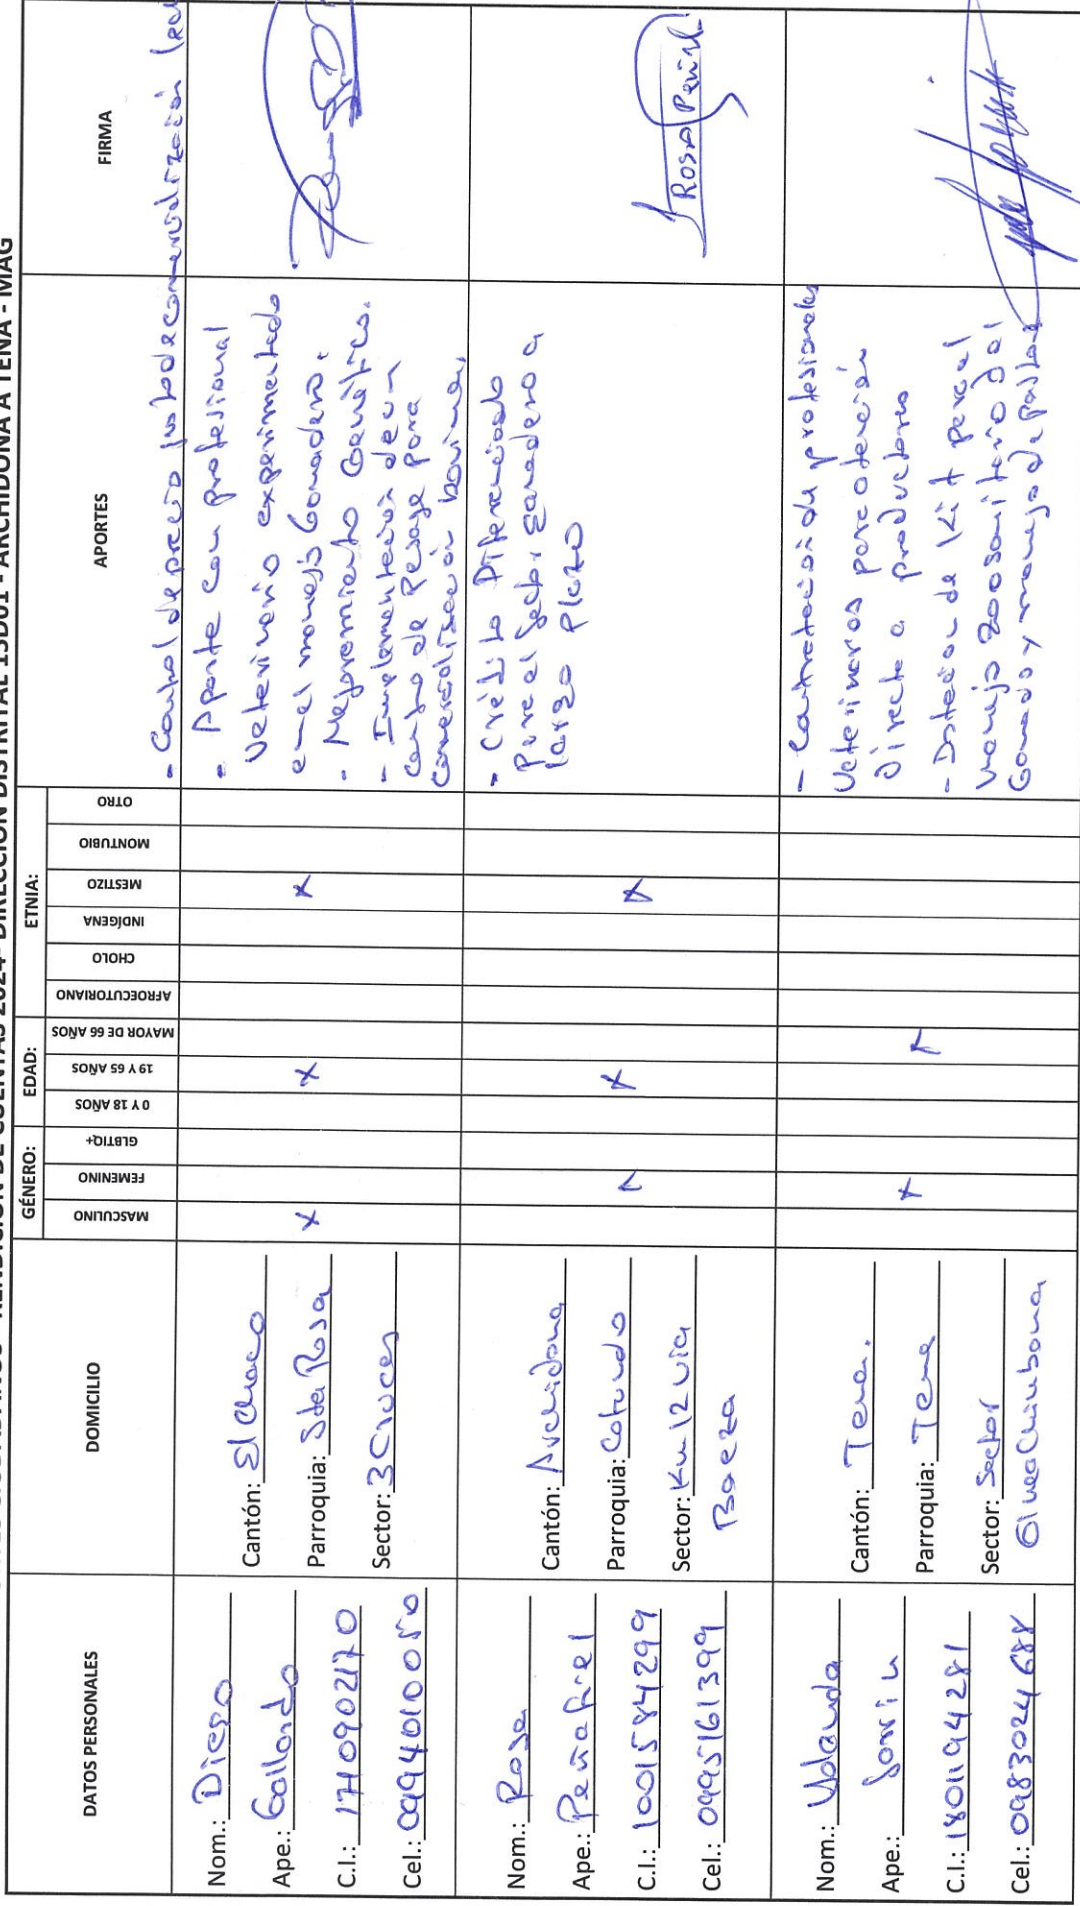 RENDICIÓN DE CUENTAS 2024- DIRECCIÓN DISTRITAL 15D01 - ARCHIDONA A TENA - MAG
DATOS PERSONALES
DOMICILIO
GÉNERO:
EDAD:
ETNIA:
APORTES
FIRMA
MASCULINO
FEMENINO
GLBTIQ+
0 Y 18 AÑOS
19 Y 65 AÑOS
MAYOR DE 66 AÑOS
AFROECUTORIANO
CHOLO
INDÍGENA
MESTIZO
MONTUBIO
OTRO
- Control de precio justo de comercialización
Nom.: Diego
Ape.: Gallardo
C.I.: 1710902170
Cel.: 0994010050
Cantón: El Chaco
Parroquia: Sta Rosa
Sector: 3 Cruces
X
X
X
- Aporte con profesional
Veterinario experimentado
en el manejo Ganadero.
- Mejoramiento Genético.
- Implementación de un
centro de Pesaje para
comercialización bovina,
Nom.: Rosa
Ape.: Peñafiel
C.I.: 1001584299
Cel.: 0995161399
Cantón: Archidona
Parroquia: Cotundo
Sector: Km 12 via
Baeza
X
X
- Crédito Diferenciado
Para el Sector ganadero a
largo Plazo
Rosa Peñafl
Nom.: Yolanda
Ape.:
C.I.: 1801194281
Cel.: 0983024688
Cantón: Tena.
Parroquia: Tena
Sector: Sector
X
- Contratación de profesionales
Veterinarios para atención
Directa a productores
- Dotación de Kit para el
manejo zoosanitario del
Ganado y manejo de pastos